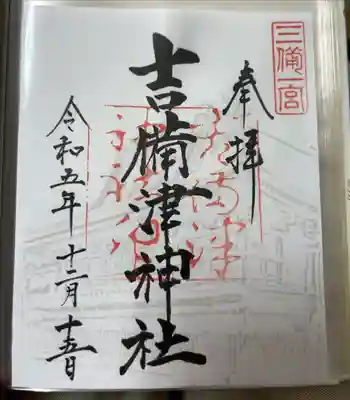 三備一宮
奉拝
吉備津神社
令和五年十二月十五日